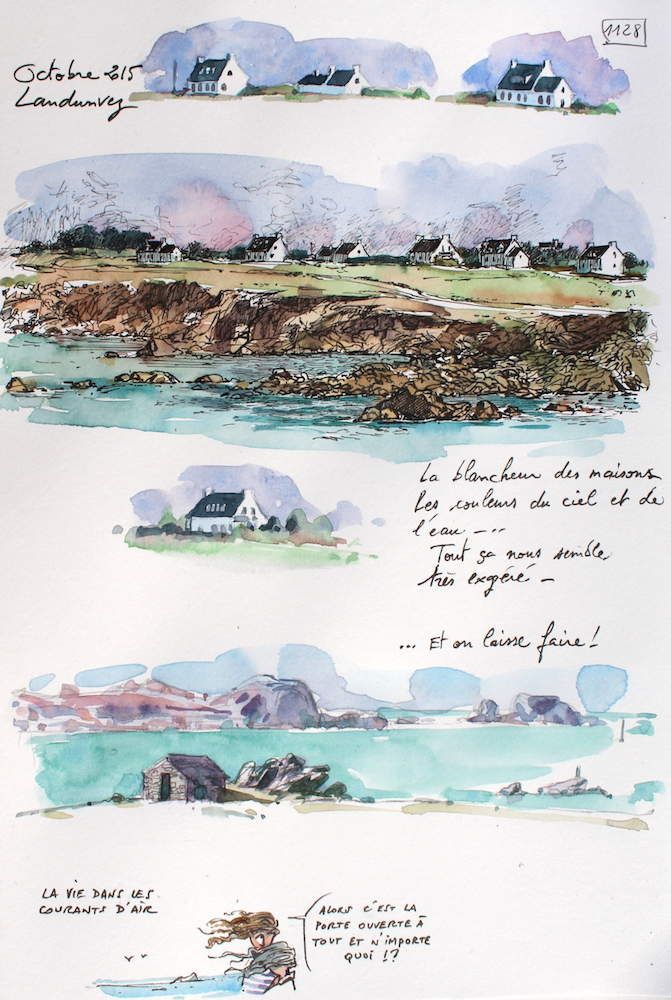 1128
Octobre 2015
Landunvez
La blancheur des maisons
Les couleurs du ciel et de
l'eau -...
Tout ça nous semble
très exagéré -
... Et on laisse faire !
LA VIE DANS LES
COURANTS D'AIR
ALORS C'EST LA
PORTE OUVERTE À
TOUT ET N'IMPORTE
QUOI !?